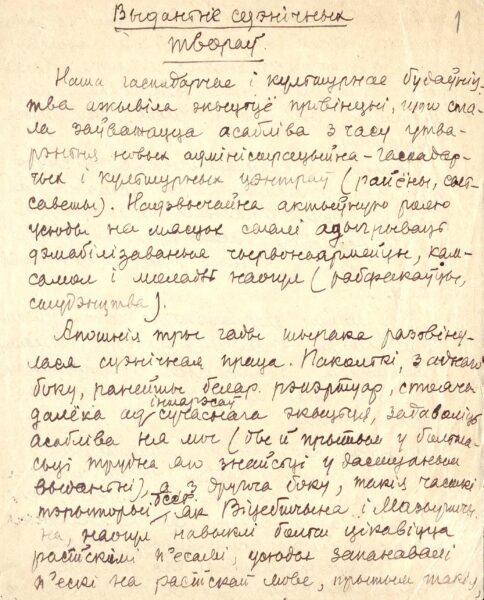 1
Выданьне сцэнічных
твораў.
Наша гаспадарчае і культурнае будаўніц-
тва ажывіла жыцьцё правінцыі, што ста-
ла заўважацца асабліва з часу утва-
рэньня новых адміністрацыйна-гаспадар-
чых і культурных цэнтраў (раёны, сель-
саветы). Надзвычайна актыўную ролю
усюды на мясцох сталі адыгрываць
дэмабілізаваныя чырвонаармейцы, кам-
самол і моладзь наогул (рабфакаўцы,
студэнцтва).
Апошнія тры гады шырака разьвіну-
лася сцэнічная праца. Паколькі, з аднаго
боку, ранейшы белар. рэпэртуар, стоячы
далёка ад інтарэсаў сучаснага жыцьця, задаволіць
асабліва ня мог (ды й прытым у большась-
сьці трудна яго знайсьці у
выданьні), а з другога боку, такія часткі
тэрыторыі БССР як Віцебшчына і Магілеўшчы-
на, наогул навыклі больш цікавіцца
расійскімі п'есамі, усюды запанавалі
п'ескі на расійскай мове, прытым такія,